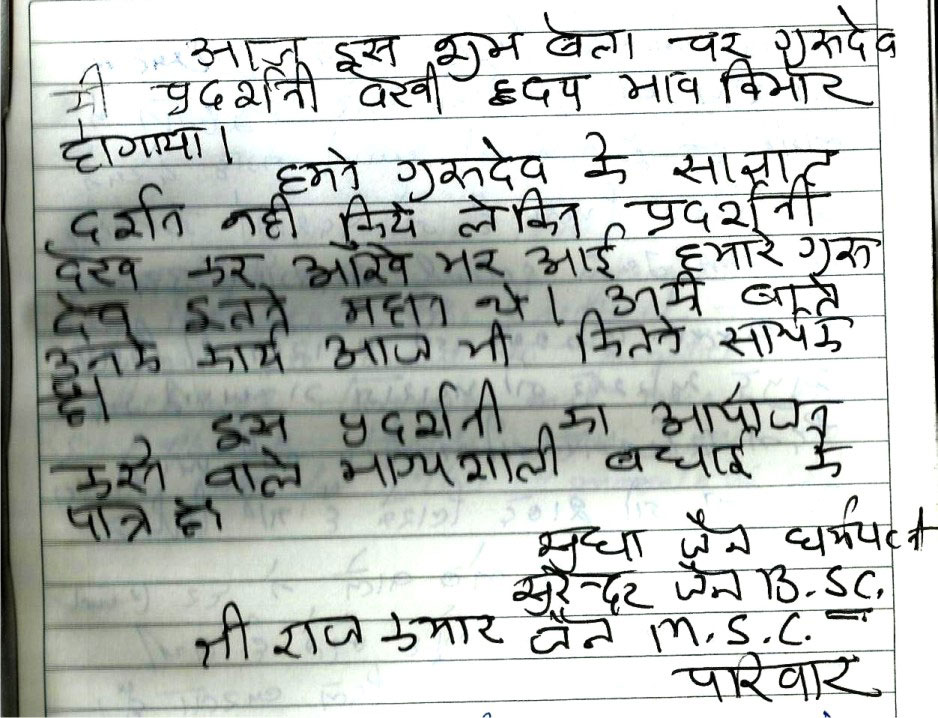 आज इस शुभ बेला पर गुरुदेव
की प्रदर्शनी देखी हृदय भाव विभोर
होगाया।
हमने गुरुदेव के साक्षात
दर्शन नही किये लेकिन प्रदर्शनी
देख कर आँखे भर आई हमारे गुरु
देव इतने महान थे। उनकी बाते
उनके कार्य आज भी कितने सार्थक
है।
इस प्रदर्शनी का आयोजन
करने वाले भाग्यशाली बधाई के
पात्र है।
सुधा जैन धर्मपत्नी
सुरेन्दर जैन B.SC.
श्री राज कुमार जैन M.S.C.
परिवार